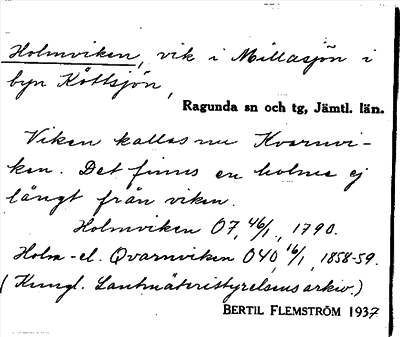 Holmviken, vik i Millasjön i
byn Köttsjön,
Ragunda sn och tg, Jämtl. län.
Viken kallas nu Kvarnvi-
ken. Det finns en holme ej
långt från viken.
Holmviken O7, 46/1, 1790.
Holm- el. Qvarnviken O40, 16/1, 1858-59.
(Kungl. Lantmäteristyrelsens arkiv.)
BERTIL FLEMSTRÖM 1937